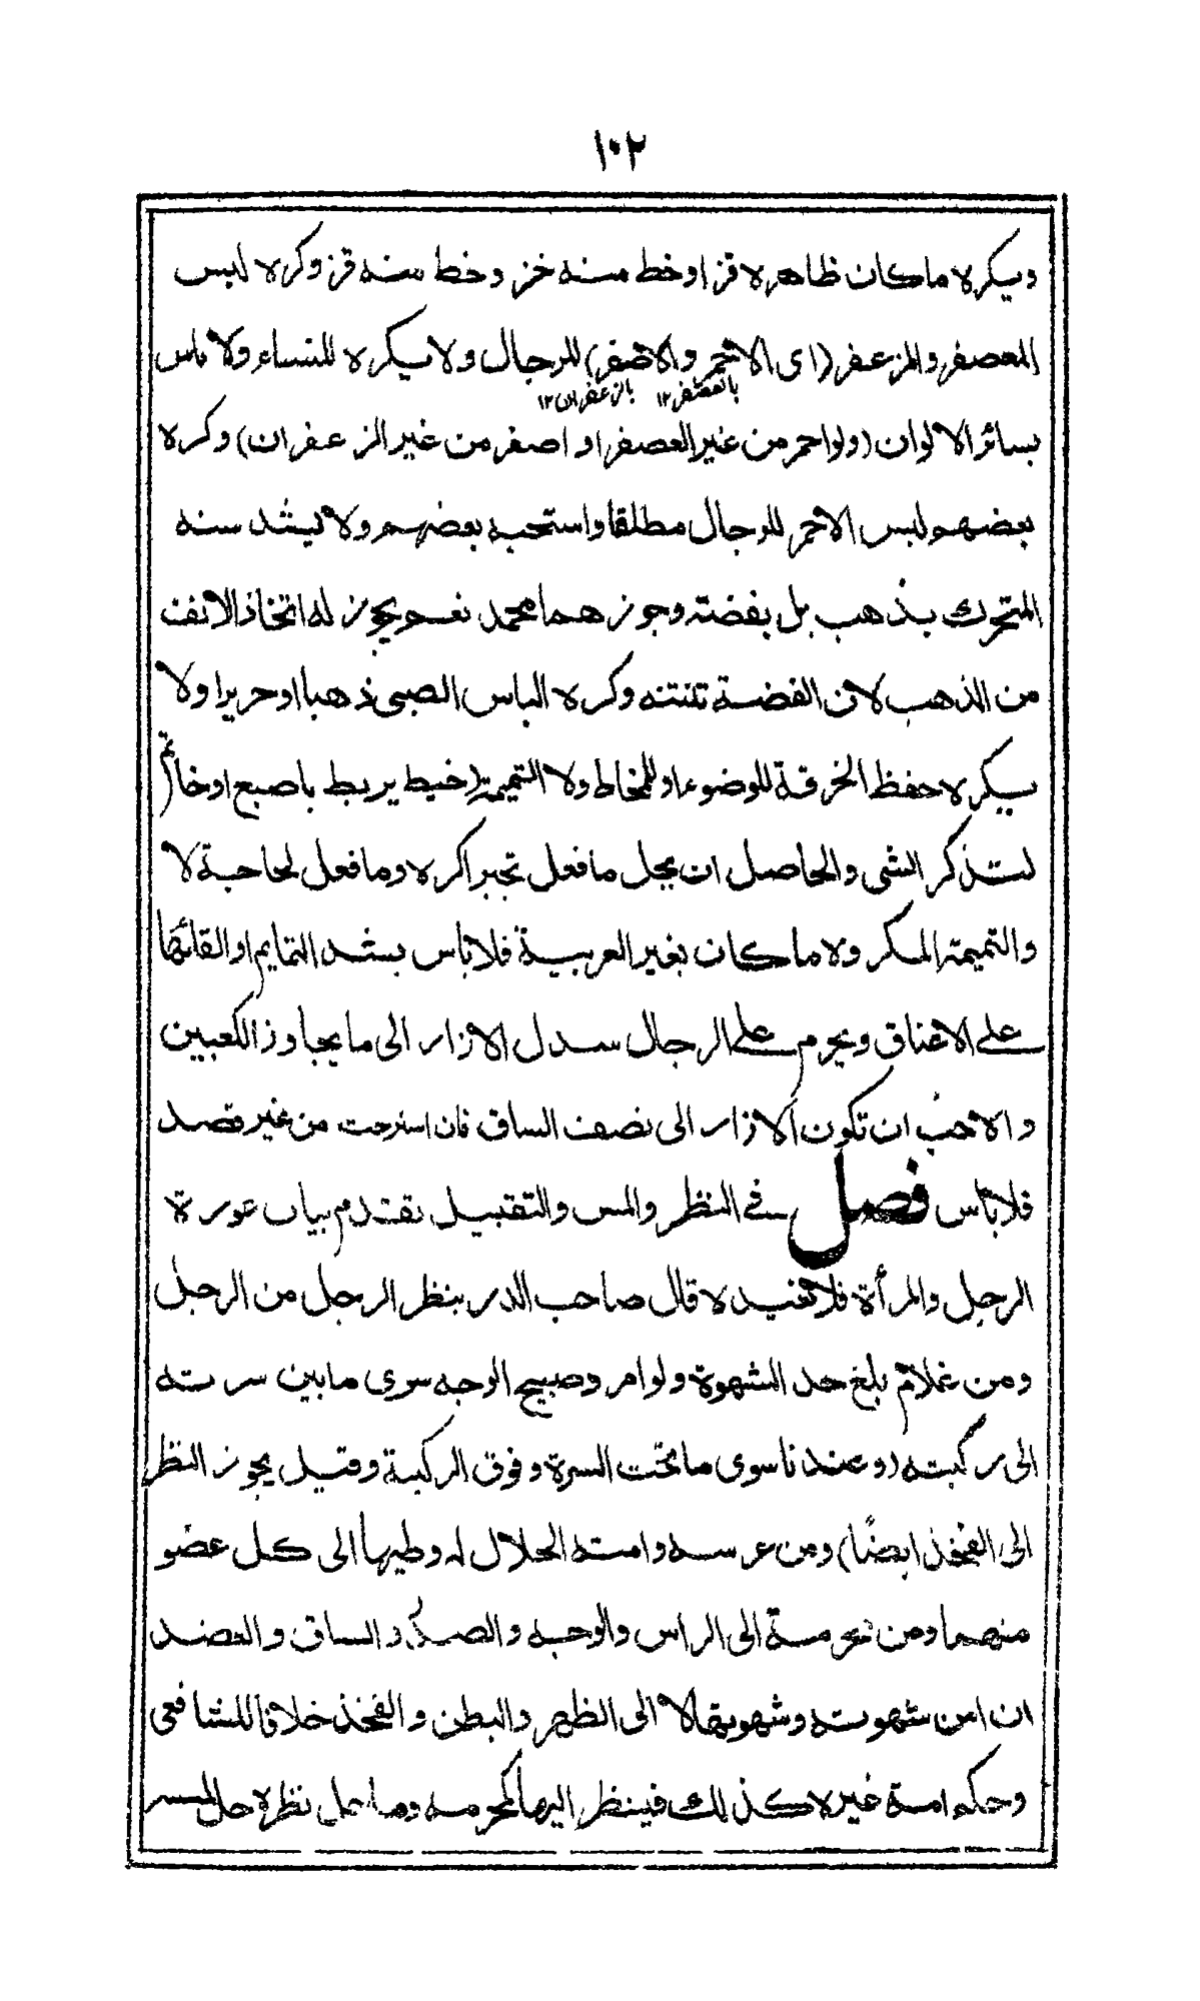 ١٠٢
ويكره ماكان ظاهره قز اوخط منه خز وخط منه قز وكره لبس
المعصفر والمزعفر (اى الاحمر والاصفر) للرجال ولا يكره للنساء ولا باس
بالعصفر١٢ بالزعفران١٢
بسائر الالوان (ولواحمر من غير العصفر او اصفر من غير الزعفران) وكره
بعضهم لبس الاحمر للرجال مطلقا واستحبه بعضهم ولا يشد سنه
المتحرك بذهب بل بفضته وجوزهما محمد نعم يجوز له اتخاذ الانف
من الذهب لان الفضة تنتنه وكره الباس الصبى ذهبا او حريرا ولا
يكره حفظ الخرقة للوضوء او للمخاط ولا التميمة (خيط يربط باصبع او خاتم
لتذكر الشى والحاصل ان يحل مافعل تجبرا كره ومافعل لحاجة لا
والتميمة المكروه ماكان بغير العربية فلا باس بشد التمايم او القائها
على الاعناق ويحرم على الرجال سدل الازار الى ما يجاوز الكعبين
والاحب ان تكون الازار الى نصف الساق فان استرحت من غير قصد
فلا باس فصل فى النظر والمس والتقبيل تقدم بيان عورة
الرجل والمرأة فلا نعيده قال صاحب الدر ينظر الرجل من الرجل
ومن غلام بلغ حد الشهوة ولو امرد صبيح الوجه سوى مابين سرته
الى ركبته (وعندنا سوى ماتحت السرة وفوق الركبة وقيل يجوز النظر
الى الفخذ ايضًا) ومن عرسه وامته الحلال له وطيها الى كل عضو
منهما ومن محرمة الى الراس والوجه والصدر والساق والعضد
ان امن شهوته وشهوتها لا الى الظهر والبطن والفخذ خلافا للشافعى
وحكم امة غيره كذلك فينظر اليها كمحرمه وماحل نظره حل لمسه